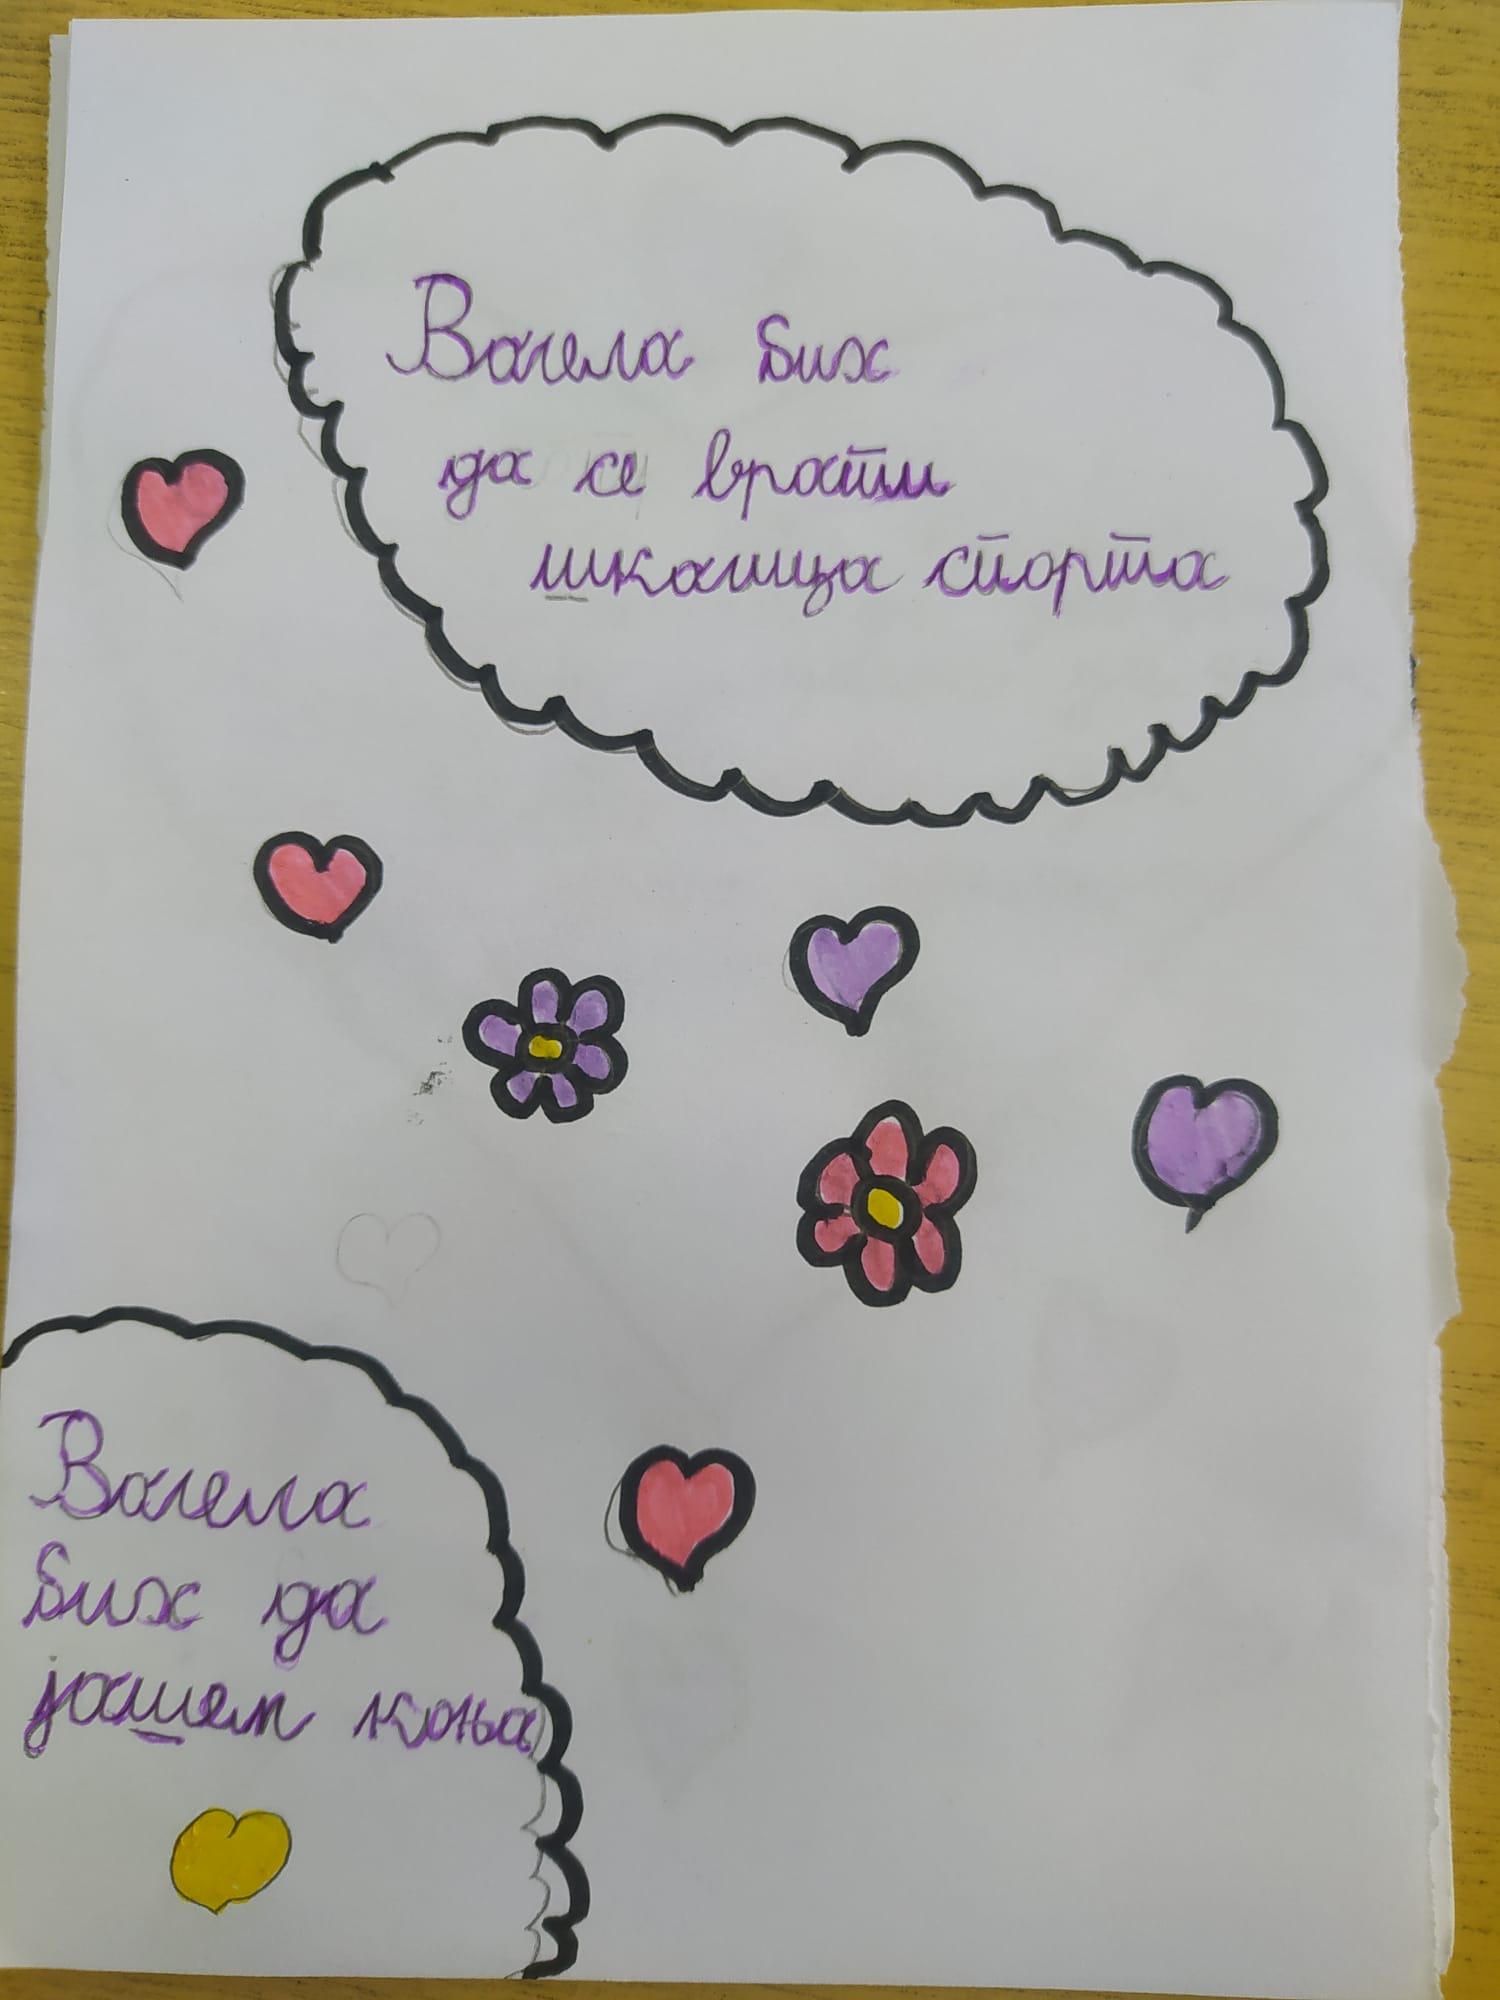 Волела бих
да се врати
школица спорта
Волела
бих да
јашем коња